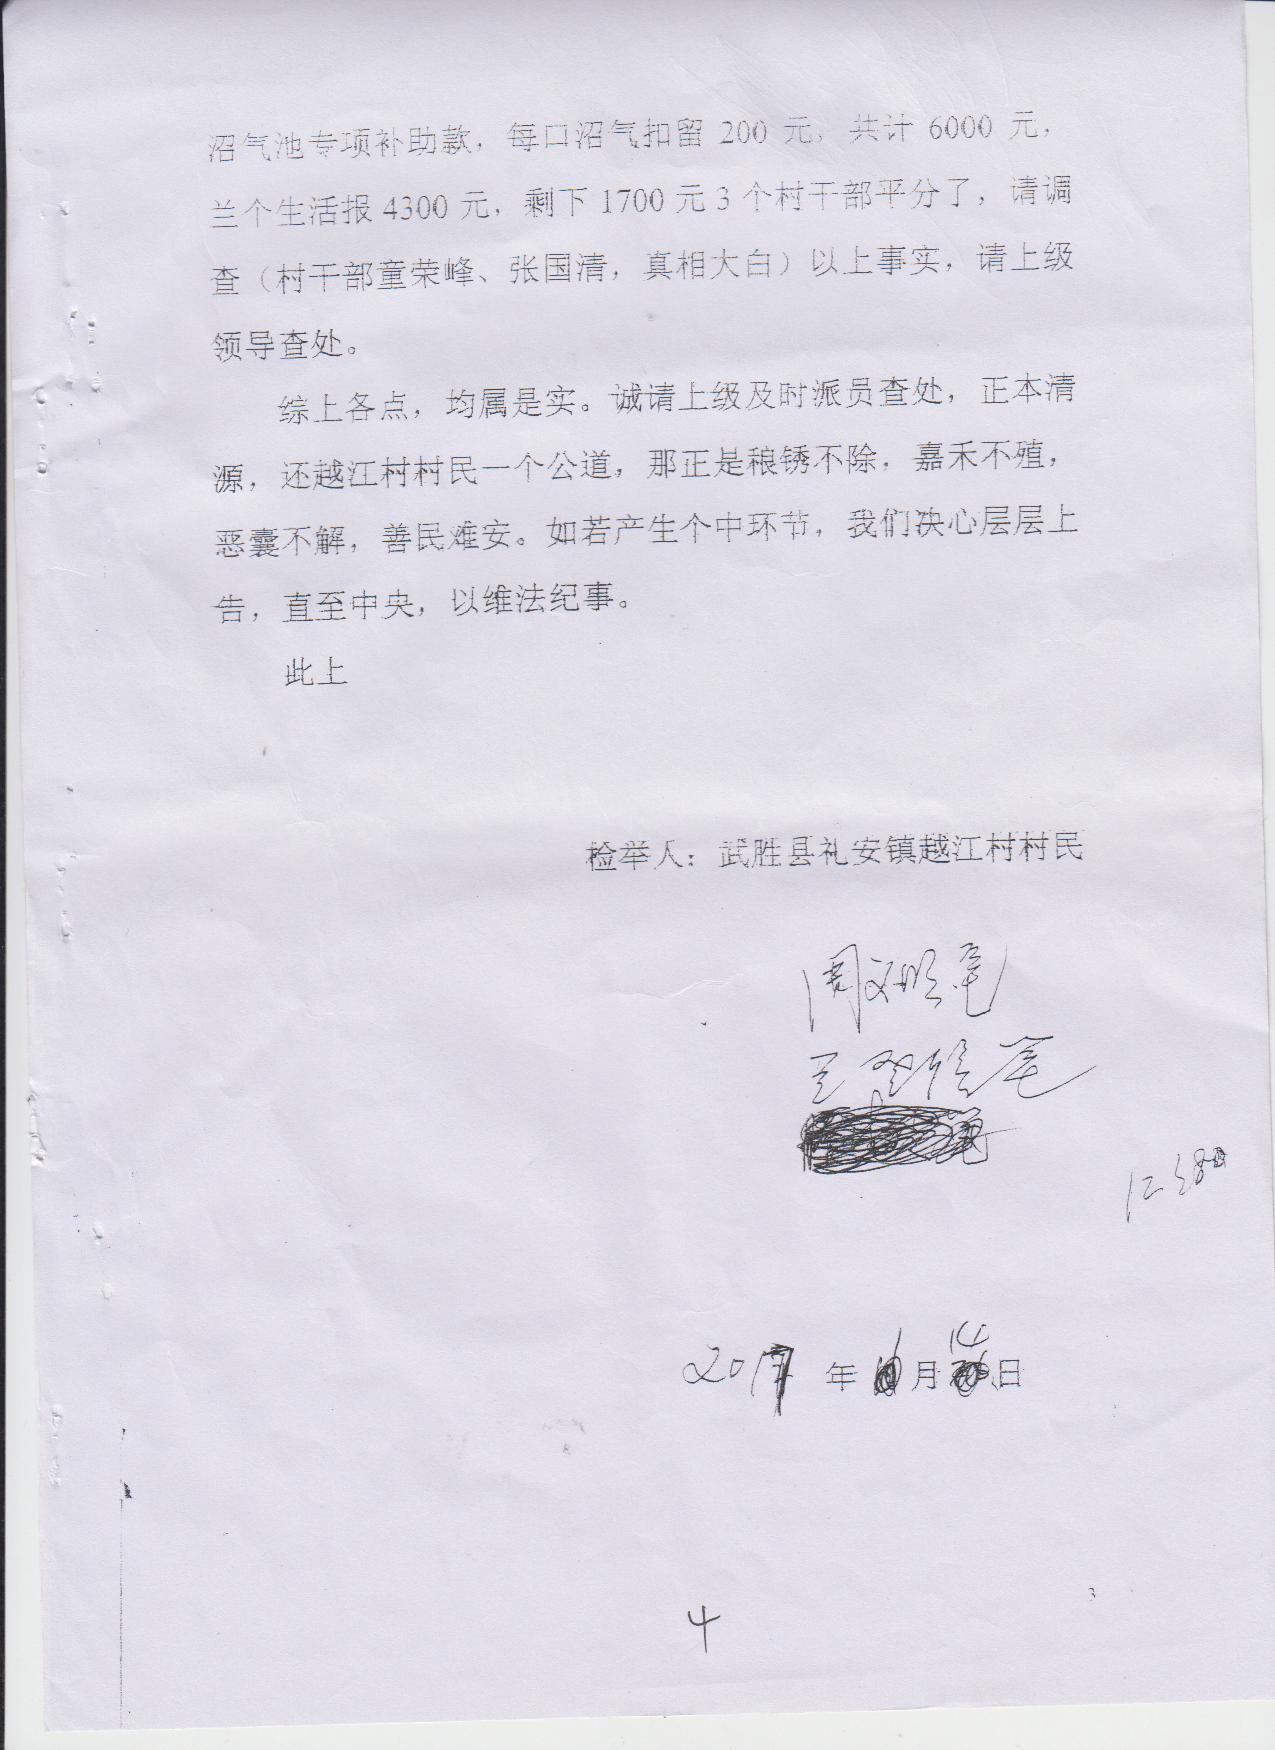 沼气池专项补助款，每口沼气扣留 200 元，共计 6000 元，
兰个生活报 4300 元，剩下 1700 元 3 个村干部平分了，请调
查（村干部童荣峰、张国清，真相大白）以上事实，请上级
领导查处。
综上各点，均属是实。诚请上级及时派员查处，正本清
源，还越江村村民一个公道，那正是稂锈不除，嘉禾不殖，
恶囊不解，善民难安。如若产生个中环节，我们决心层层上
告，直至中央，以维法纪事。
此上
检举人：武胜县礼安镇越江村村民
周
笔
2017 年 月 14 日
3
4